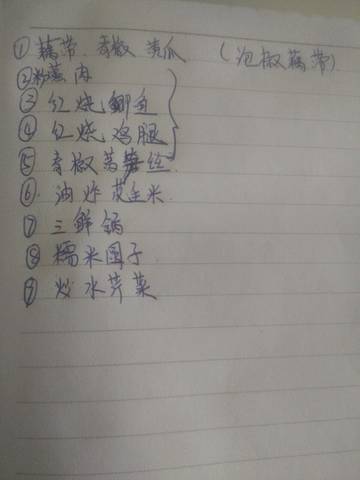 ① 藕带 青椒 黄瓜 (泡椒藕带)
② 粉蒸肉
③ 红烧鲫鱼
④ 红烧鸡腿
⑤ 青椒莴笋丝
⑥ 油炸花生米
⑦ 三鲜锅
⑧ 糯米圆子
⑨ 炒水芹菜